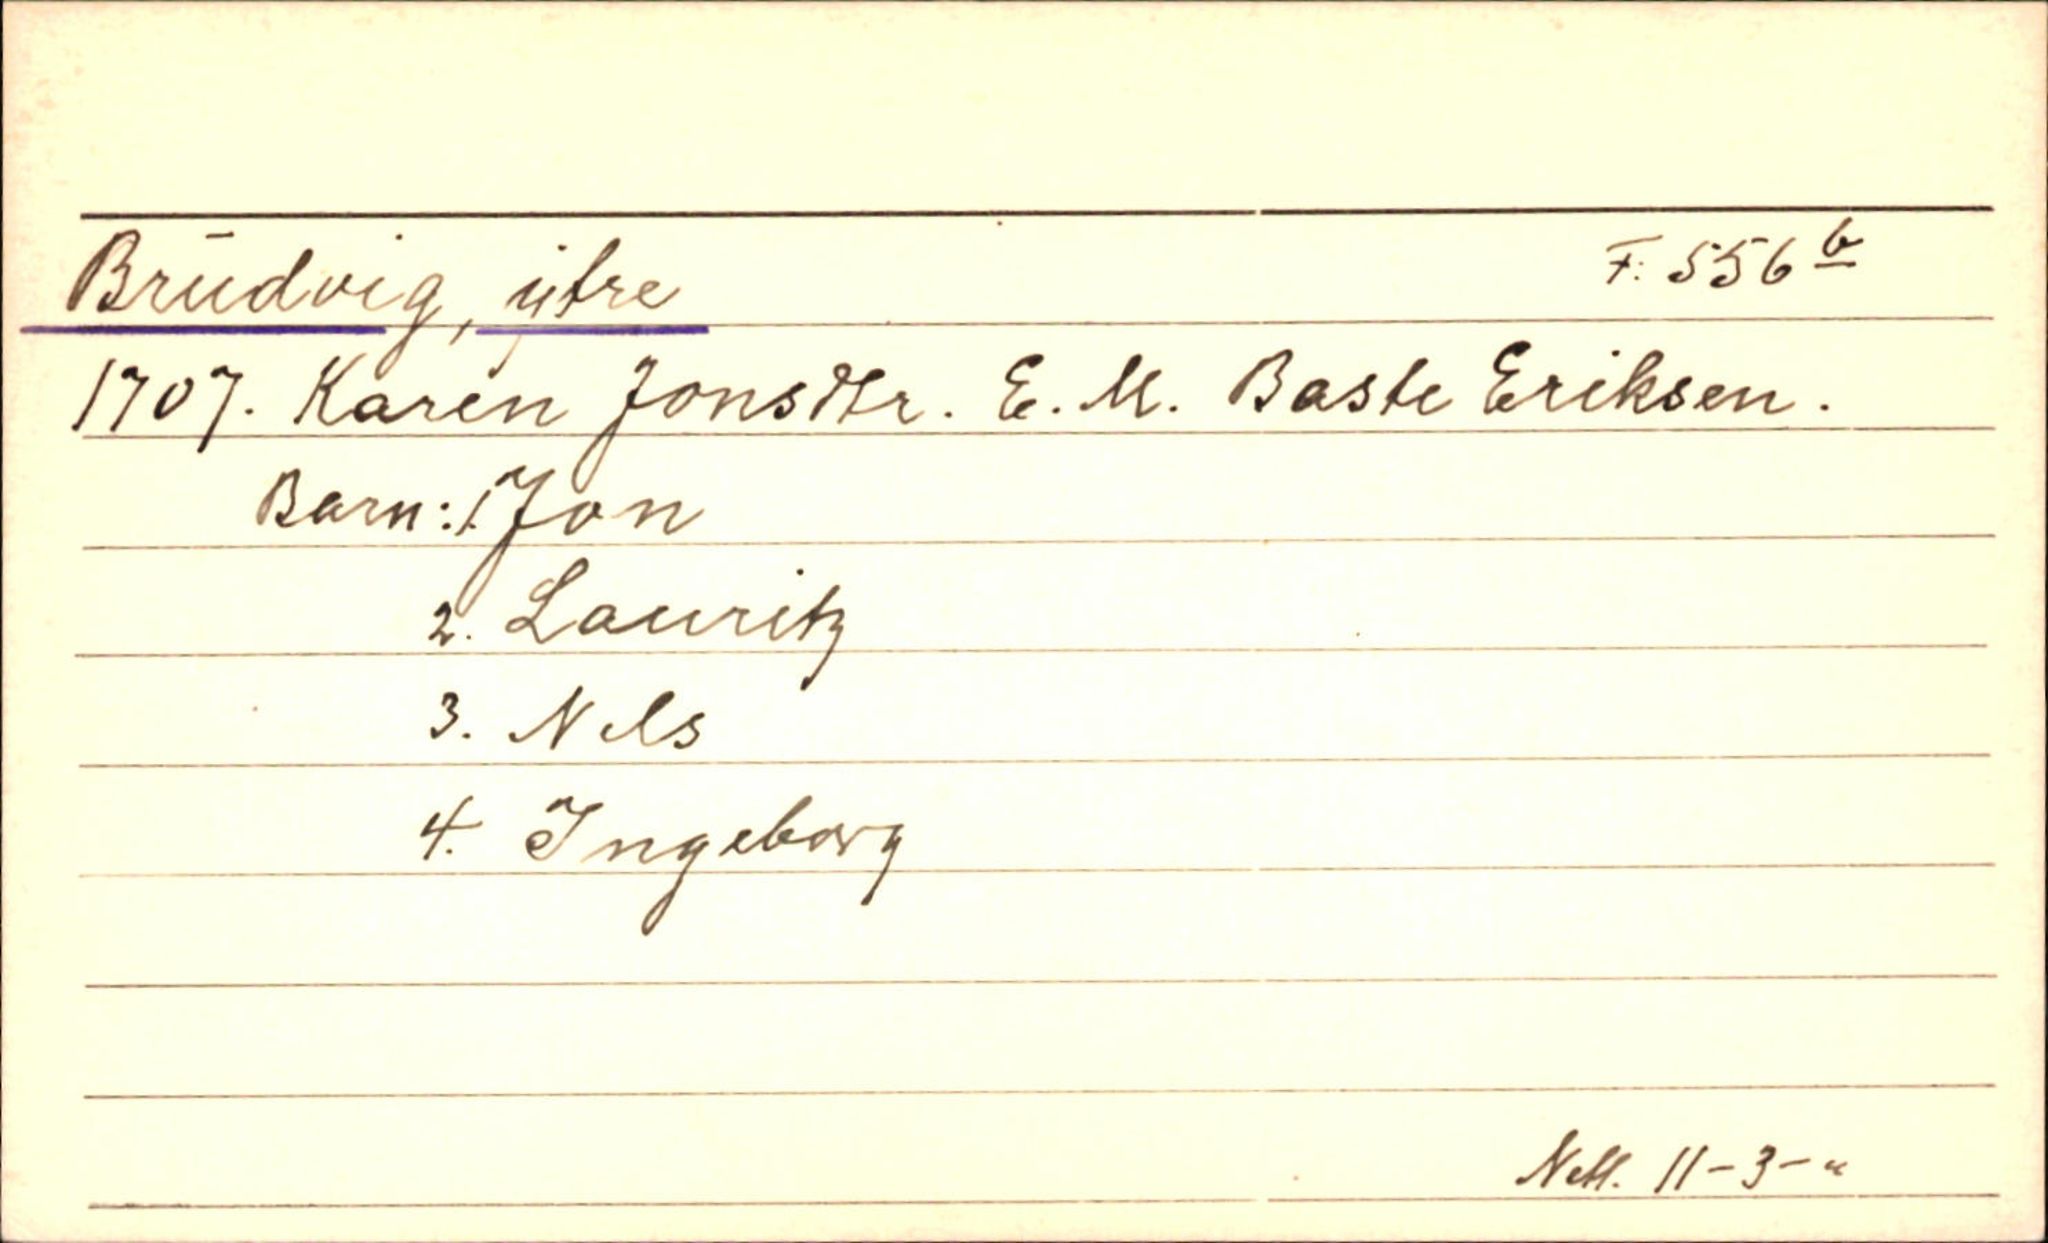 Brūdvig, ytre F. 556 b
1707. Karen Jonsdtr. E. M. Baste Eriksen.
Barn: 1. Jon
2. Lauritz
3. Nels
4. Ingeborg
11-3-"